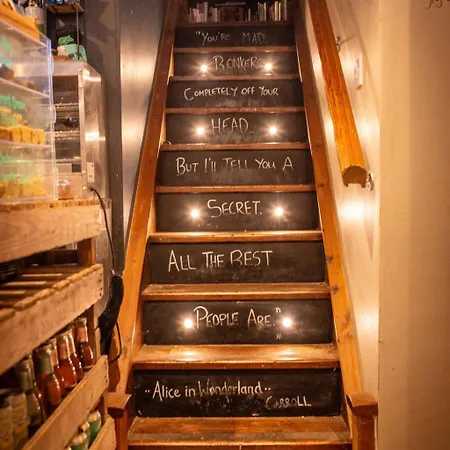 "You're Mad
Bonkers
Completely off your
Head...
But I'll tell you a
Secret.
All the best
People Are."
..Alice in Wonderland..
Carroll